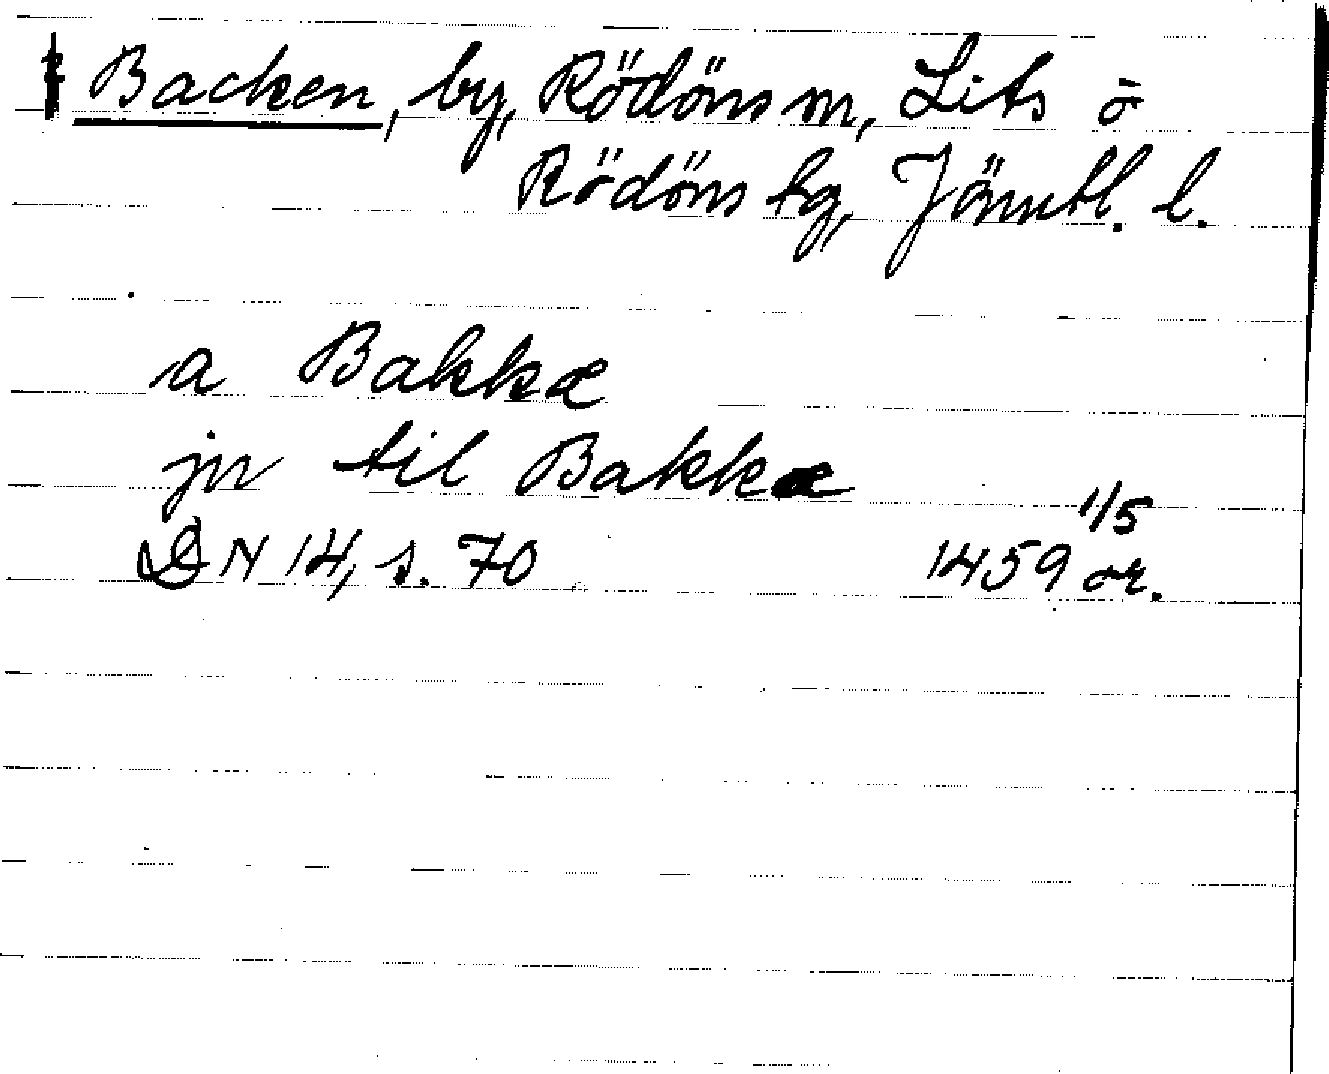 ‡ Backen, by, Rödöns sn, Lits o
Rödöns tg, Jämtl. l.
a Bakkæ
jn til Bakkæ
1/5
DN 14, s. 70 1459 or.